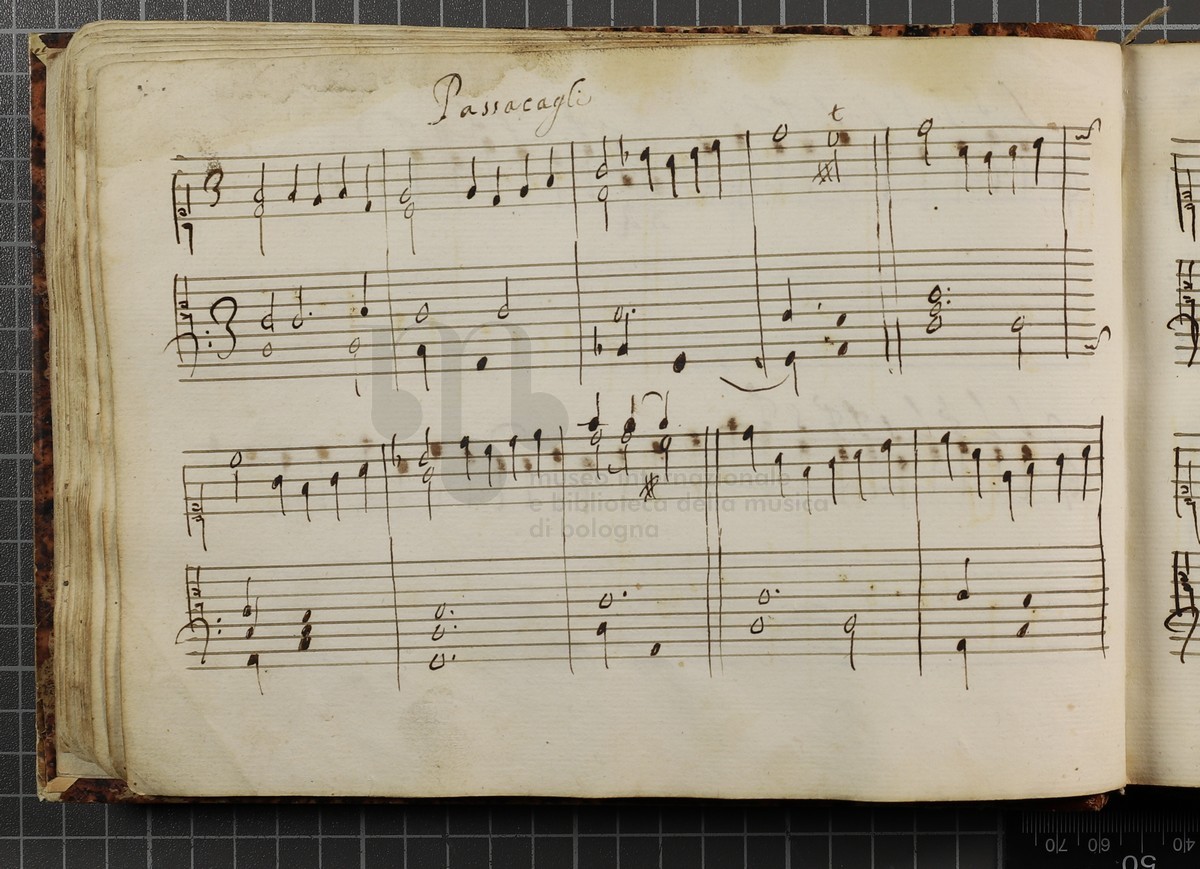 Passacagli
t
3
3
museo internazionale
e biblioteca della musica
di bologna
70
60
50
40